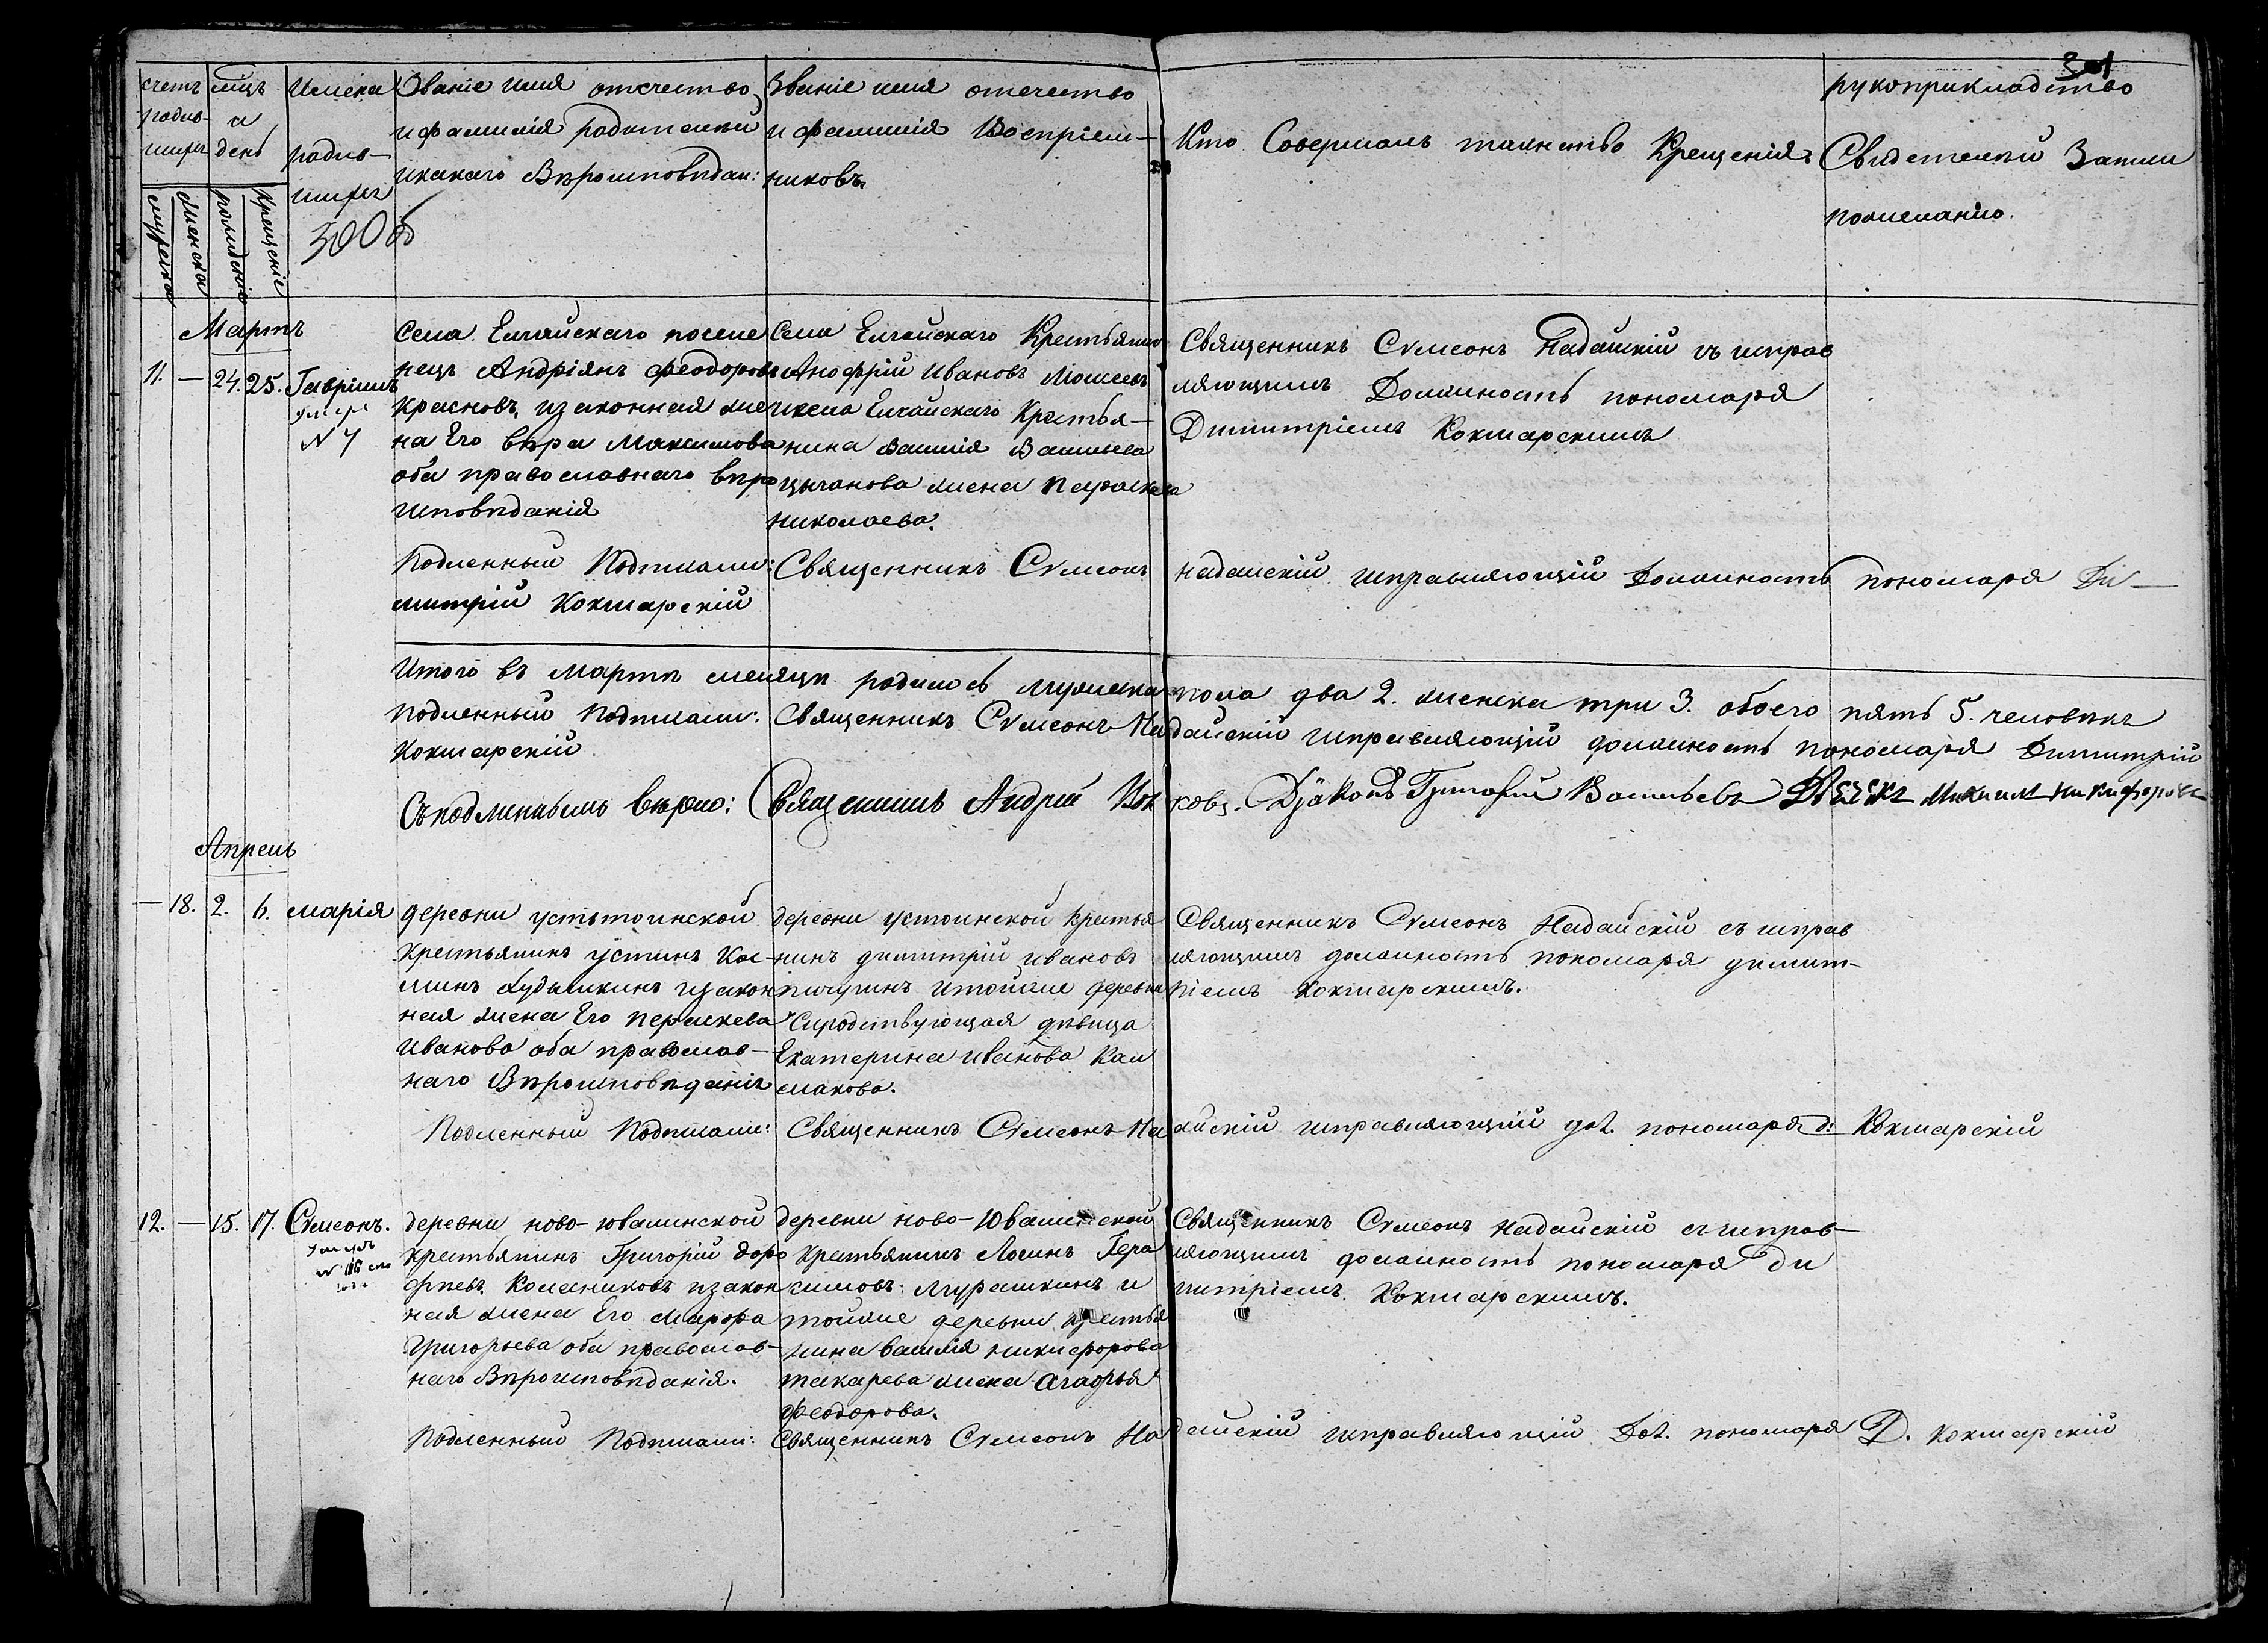 301
счетъ
родив-
шихся
мужеска
женска
мѣцъ
и
день
рожденіе
крещеніе
Имена
родив-
шихся
300 об
Званіе имя отечество
и фамилія родителей
икакаго Вѣроисповѣдан:
Званіе имя отечество
и фамилія Воспріем-
никовъ.
Кто Совершалъ таинство Крещенія.
рукоприкладство
Свидетелей Записи
пожеланію.
Мартъ
11. — 24. 25. Гавріилъ
умеръ
N 7
Села Елгайскаго поселе
нецъ Андріянъ Феодоровъ
Красновъ, изаконная жe
на Его вѣра Максимова
оба православнаго вѣро
исповѣданія
Села Елгайскаго Крестьянин
Анофрій Ивановъ Мошеевъ
исела Елгайскаго Крестья-
нина Василія Васильева
цыганова жена Параскева
Николаева.
Священникъ Сѵмеонъ Надайскій съ исправ
ляющимъ Должность пономаря
Димитріемъ Кокшарскимъ
Подленный Подписали: Священникъ Сѵмеонъ Надайскій исправляющій Должность пономаря Ди-
митрій Кокшарскій
Итого въ Мартѣ месяцѣ родилось мужеска пола два 2. женска три 3. обоего пять 5. человѣкъ
Подленный Подписали: Священникъ Сѵмеонъ Надайскій исправляющій должность пономаря Димитрій
Кокшарскій
Съ подлиннымъ вѣрно: Священникъ Андрей Діаконъ Григорій Васильевъ Максим Никифоровъ
Апрель
— 18. 2. 6. марія
деревни устьтоинской
Крестьянинъ устинъ Кос-
минъ Кудышкинъ изакон
ная жена Его Параскева
Иванова оба православ-
наго Вѣроисповѣданія
деревни устоинской Крестья
нинъ димитрій Ивановъ
пичугинъ итойже деревни
Сиродствующая дѣвица
Екатерина Иванова Кал
макова.
Священникъ Сѵмеонъ Надайскій съ исправ
ляющимъ должность пономаря димит-
ріемъ Кокшарскимъ.
Подленный Подписали: Священникъ Сѵмеонъ Надайскій исправляющій дол. пономаря д: Кокшарскій
12. — 15. 17. Сѵмеонъ.
умеръ
деревни ново-ювалинской
Крестьянинъ Григорій доро
фѣевъ Колесниковъ изакон
ная жена Его Марфа
Григорьева оба православ-
наго Вѣроисповѣданія.
деревни ново-Ювалинской
Крестьянинъ Логинъ Гера
симовъ Мурашкинъ и
тойже деревни крестья
нина василія никифорова
токарева жена агафья
Феодорова.
Священникъ Сѵмеонъ Надайскій съ исправ-
ляющимъ должность пономаря Ди
митріемъ Кокшарскимъ.
Подленный Подписали: Священникъ Сѵмеонъ Надайскій исправляющій Дол. пономаря Д. Кокшарскій